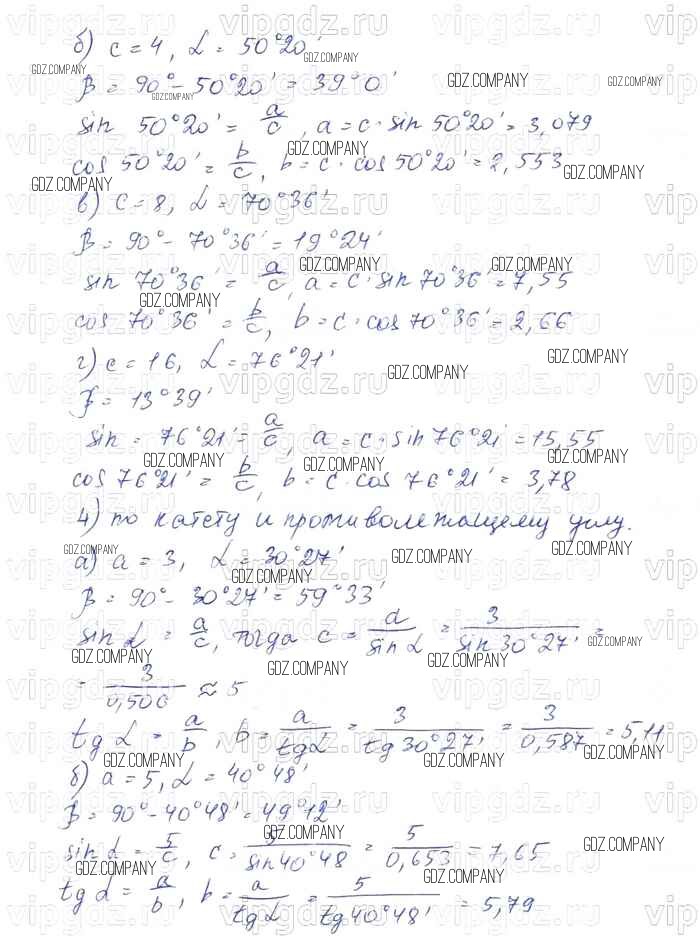 б) c = 4, α = 50°20'
β = 90° - 50°20' = 39°0'
sin 50°20' = a/c, a = c · sin 50°20' = 3,079
cos 50°20' = b/c, b = c · cos 50°20' = 2,553
в) c = 8, α = 70°36'
β = 90° - 70°36' = 19°24'
sin 70°36' = a/c, a = c · sin 70°36' = 7,55
cos 70°36' = b/c, b = c · cos 70°36' = 2,66
г) c = 16, α = 76°21'
β = 13°39'
sin = 76°21' = a/c, a = c · sin 76°21' = 15,55
cos 76°21' = b/c, b = c · cos 76°21' = 3,78
4) по катету и противолежащему углу.
а) a = 3, α = 30°27'
β = 90° - 30°27' = 59°33'
sin α = a/c, тогда c = a/sin α = 3/sin 30°27' =
= 3/0,506 ≈ 5
tg α = a/b, b = a/tg α = 3/tg 30°27' = 3/0,587 = 5,11
б) a = 5, α = 40°48'
β = 90° - 40°48' = 49°12'
sin α = 5/c, c = 5/sin 40°48 = 5/0,653 = 7,65
tg α = a/b, b = a/tg α = 5/tg 40°48' = 5,79